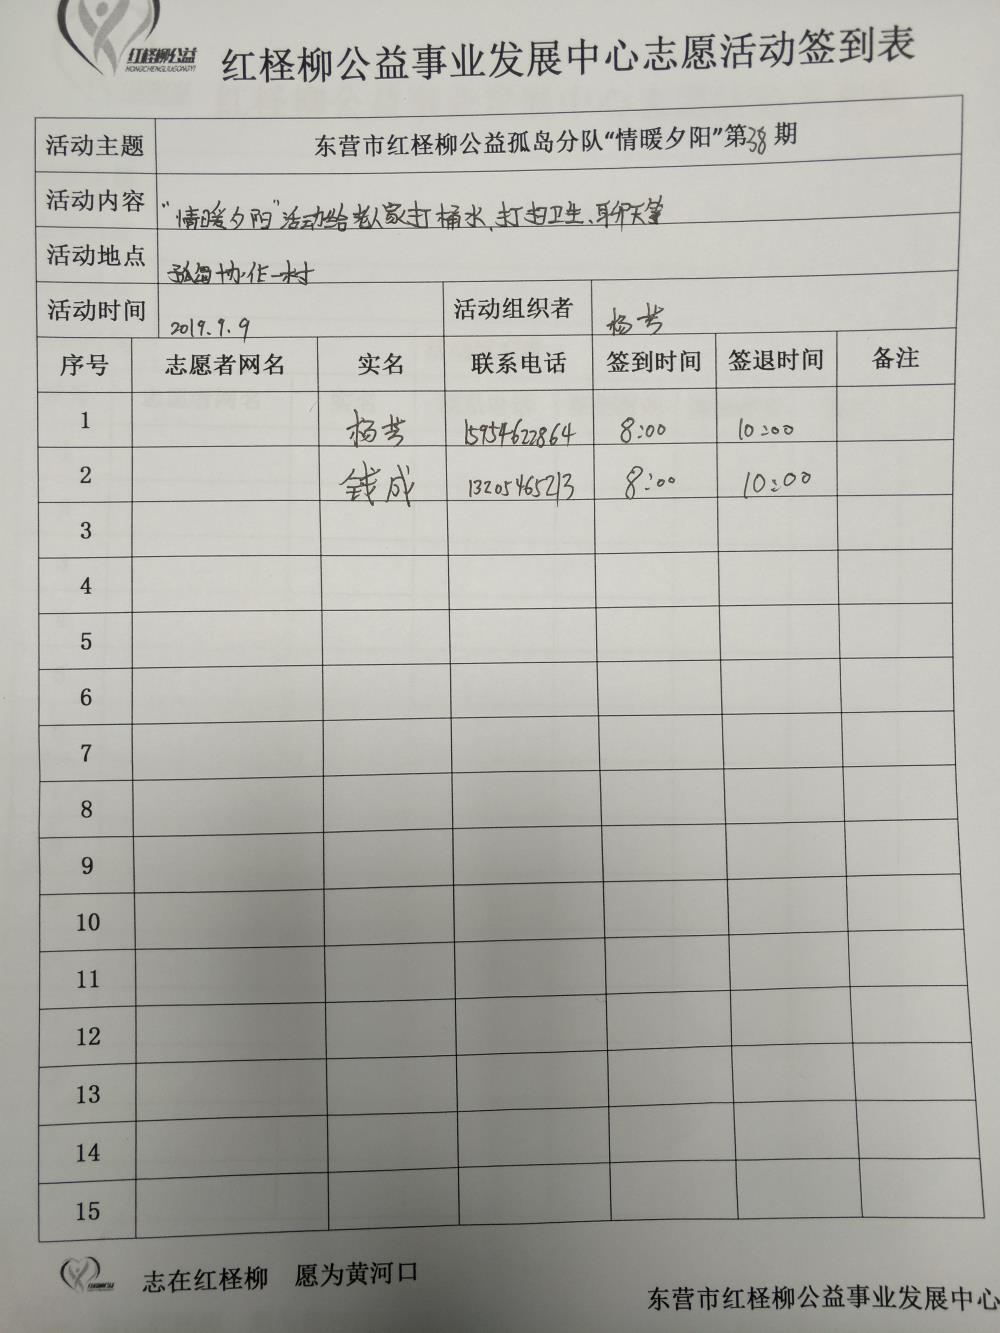 红柽柳公益
HONGCHENGLIUGONGYI
红柽柳公益事业发展中心志愿活动签到表
活动主题 东营市红柽柳公益孤岛分队“情暖夕阳”第38期
活动内容 “情暖夕阳”活动给老人家打桶水、打扫卫生、聊天等
活动地点 孤岛协作一村
活动时间 2019.9.9 活动组织者 杨芳
序号 志愿者网名 实名 联系电话 签到时间 签退时间 备注
1 杨芳 15954622864 8:00 10:00
2 钱成 13205465213 8:00 10:00
3
4
5
6
7
8
9
10
11
12
13
14
15
志在红柽柳 愿为黄河口
东营市红柽柳公益事业发展中心